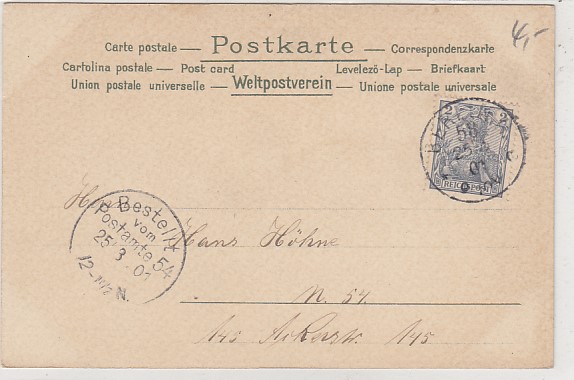 4,-
Carte postale — Postkarte — Correspondenzkarte
Cartolina postale — Post card Levelezö-Lap — Briefkaart
Union postale universelle — Weltpostverein — Unione postale universale
25 3 01
REICHSPOST
Bestellt
vom
Postamte 54
25/3. 01
12- N.
Hans Höhne
N. 54.
145